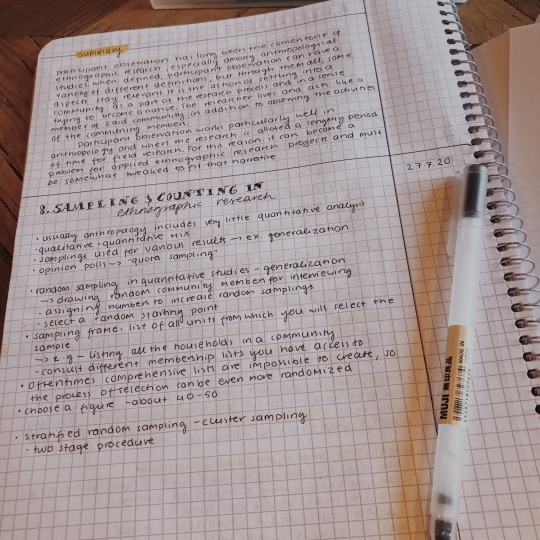 summary
participant observation has long been the cornerstone of
ethnographic research, especially among anthropological
studies. When defined, participant observation can have a
variety of different definitions, but through them all, some
aspects stay relevant. It is the action of settling into a
community as a part of the research process and in a sense
trying to become a native. The researcher lives and acts like a
member of said community in addition to observing the activities
of the community members.
Participant observation works particularly well in
anthropology and when the research is alloted a lengthy period
of time for field research. For this reason it can become a
problem for applied ethnographic research projects and must
be somewhat tweaked to fit that narrative.
27.7.20
8. SAMPLING & COUNTING IN
ethnographic research
• usually anthropology includes very little quantitative analysis
• qualitative-quantitative mix
• samplings used for various results → ex. generalization
• opinion polls → "quota sampling"
• random sampling in quantitative studies - generalization
→ drawing random community member for interviewing
- assigning numbers to increase random samplings
- select a random starting point
• sampling frame: list of all units from which you will select the
sample
→ e.g - listing all the households in a community
- consult different membership lists you have access to
• oftentimes comprehensive lists are impossible to create, so
the process of selection can be even more randomized
• choose a figure - about 40-50
• stratified random sampling - cluster sampling
- two stage procedure
MUJI 無印良品
MADE IN